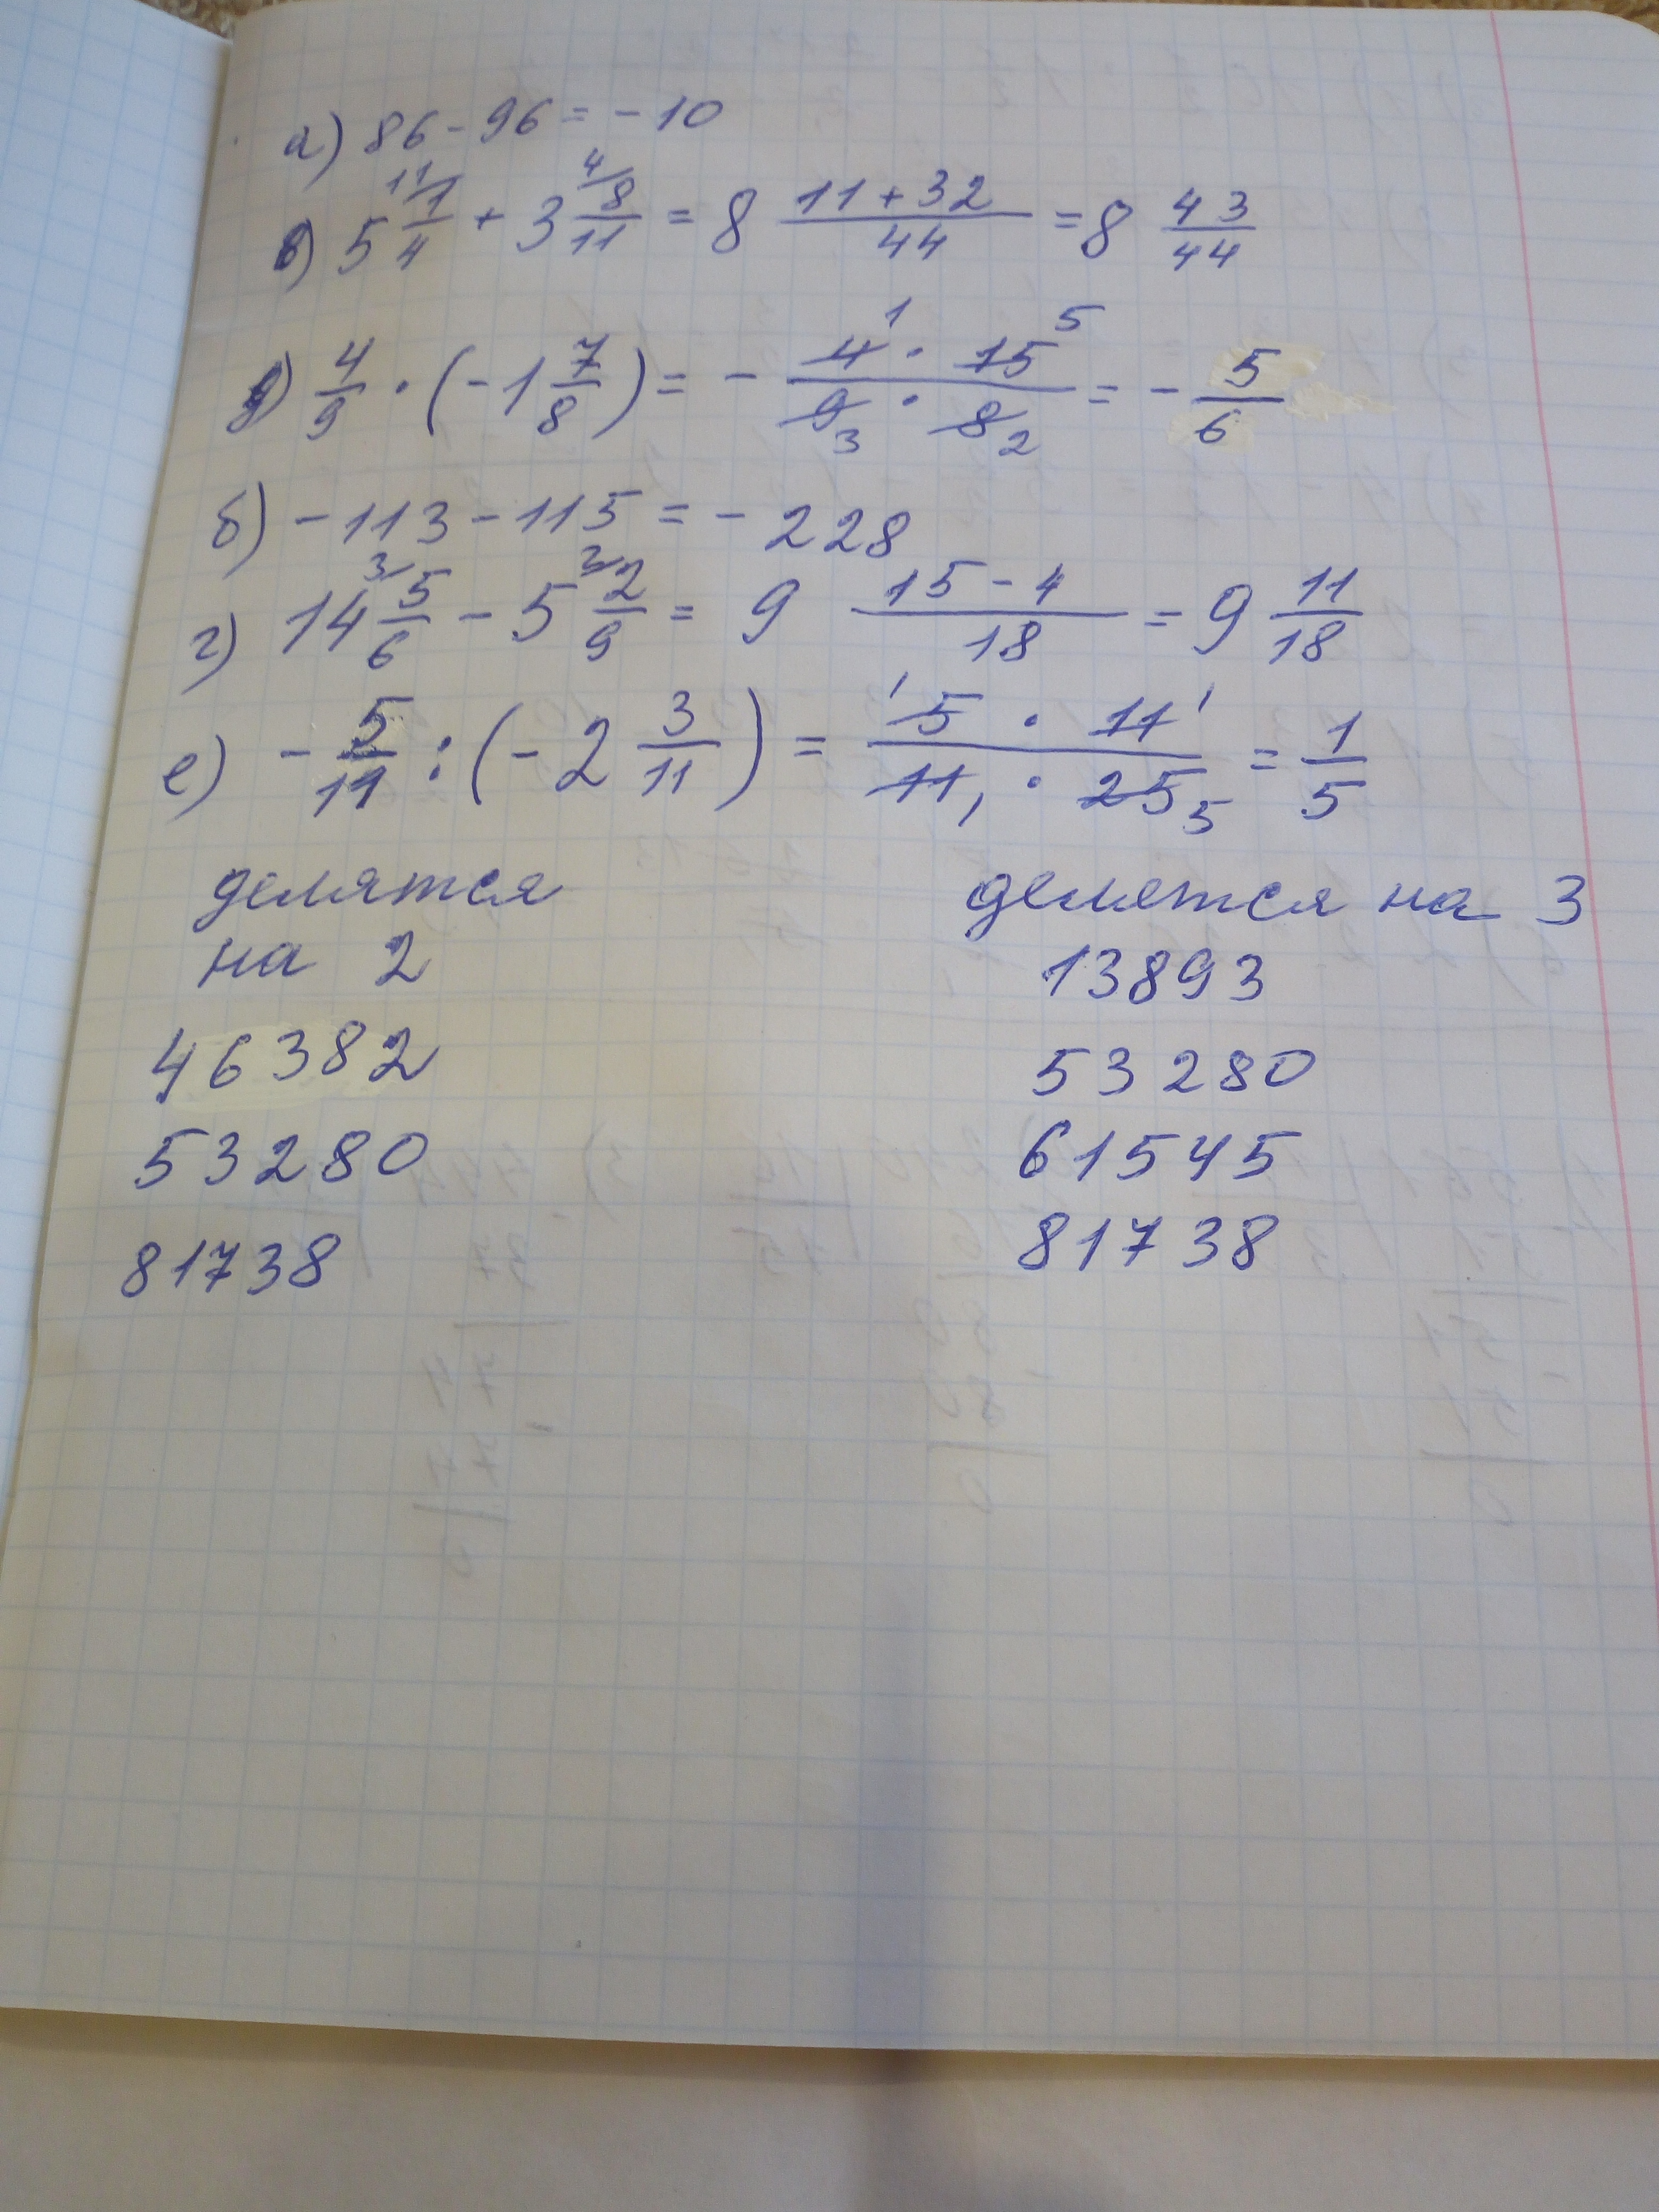 а) 86 - 96 = - 10
в) 5 11/ 1/4 + 3 4/ 8/11 = 8 (11 + 32)/44 = 8 43/44
д) 4/9 · (- 1 7/8) = - (4 1 · 15 5)/(9 3 · 8 2) = - 5/6
б) - 113 - 115 = - 228
г) 14 3/ 5/6 - 5 2/ 2/9 = 9 (15 - 4)/18 = 9 11/18
е) - 5/11 : (- 2 3/11) = (1 5 · 11 1)/(11 1 · 25 5) = 1/5
делятся
на 2
46382
53280
81738
делятся на 3
13893
53280
61545
81738